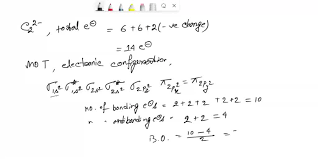 C₂²⁻, total e⊖ = 6+6+2(-ve charge)
= 14 e⊖
MOT, electronic configuration,
σ1s² σ*1s² σ2s² σ*2s² σ2pz² π2px² = π2py²
no. of bonding e⊖s = 2+2+2+2+2 = 10
" " antibonding e⊖s = 2+2 = 4
B.O. = 10-4/2 =